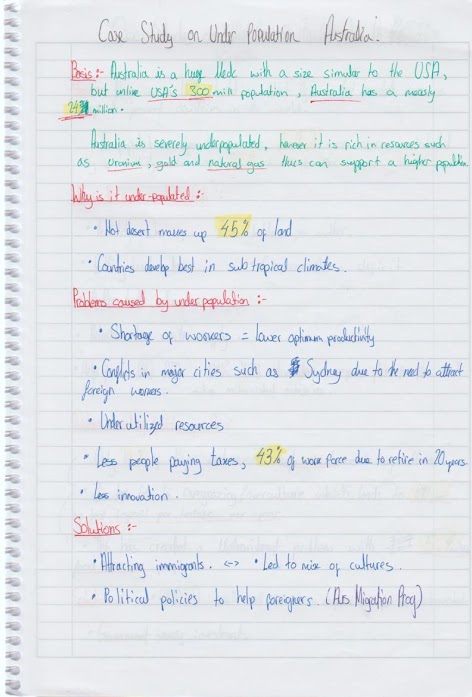 Case Study on Under Population Australia:
Basis :- Australia is a huge Medc with a size simular to the USA,
but unlike USA's 300 mill population, Australia has a measly
24 million.
Australia is severely underpopulated, however it is rich in resources such
as uranium, gold and natural gas thus can support a higher population.
Why is it under-populated :-
• Hot desert makes up 45% of land
• Countries develop best in sub tropical climates.
Problems caused by under population :-
• Shortage of workers = lower optimum productivity
• Conflicts in major cities such as Sydney due to the need to attract
foreign workers.
• Under utilized resources
• Less people paying taxes, 43% of work force due to retire in 20 years.
• Less innovation.
Solutions :-
• Attracting immigrants. <-> • Led to mix of cultures.
• Political policies to help foreigners. (Aus Migration Prog)